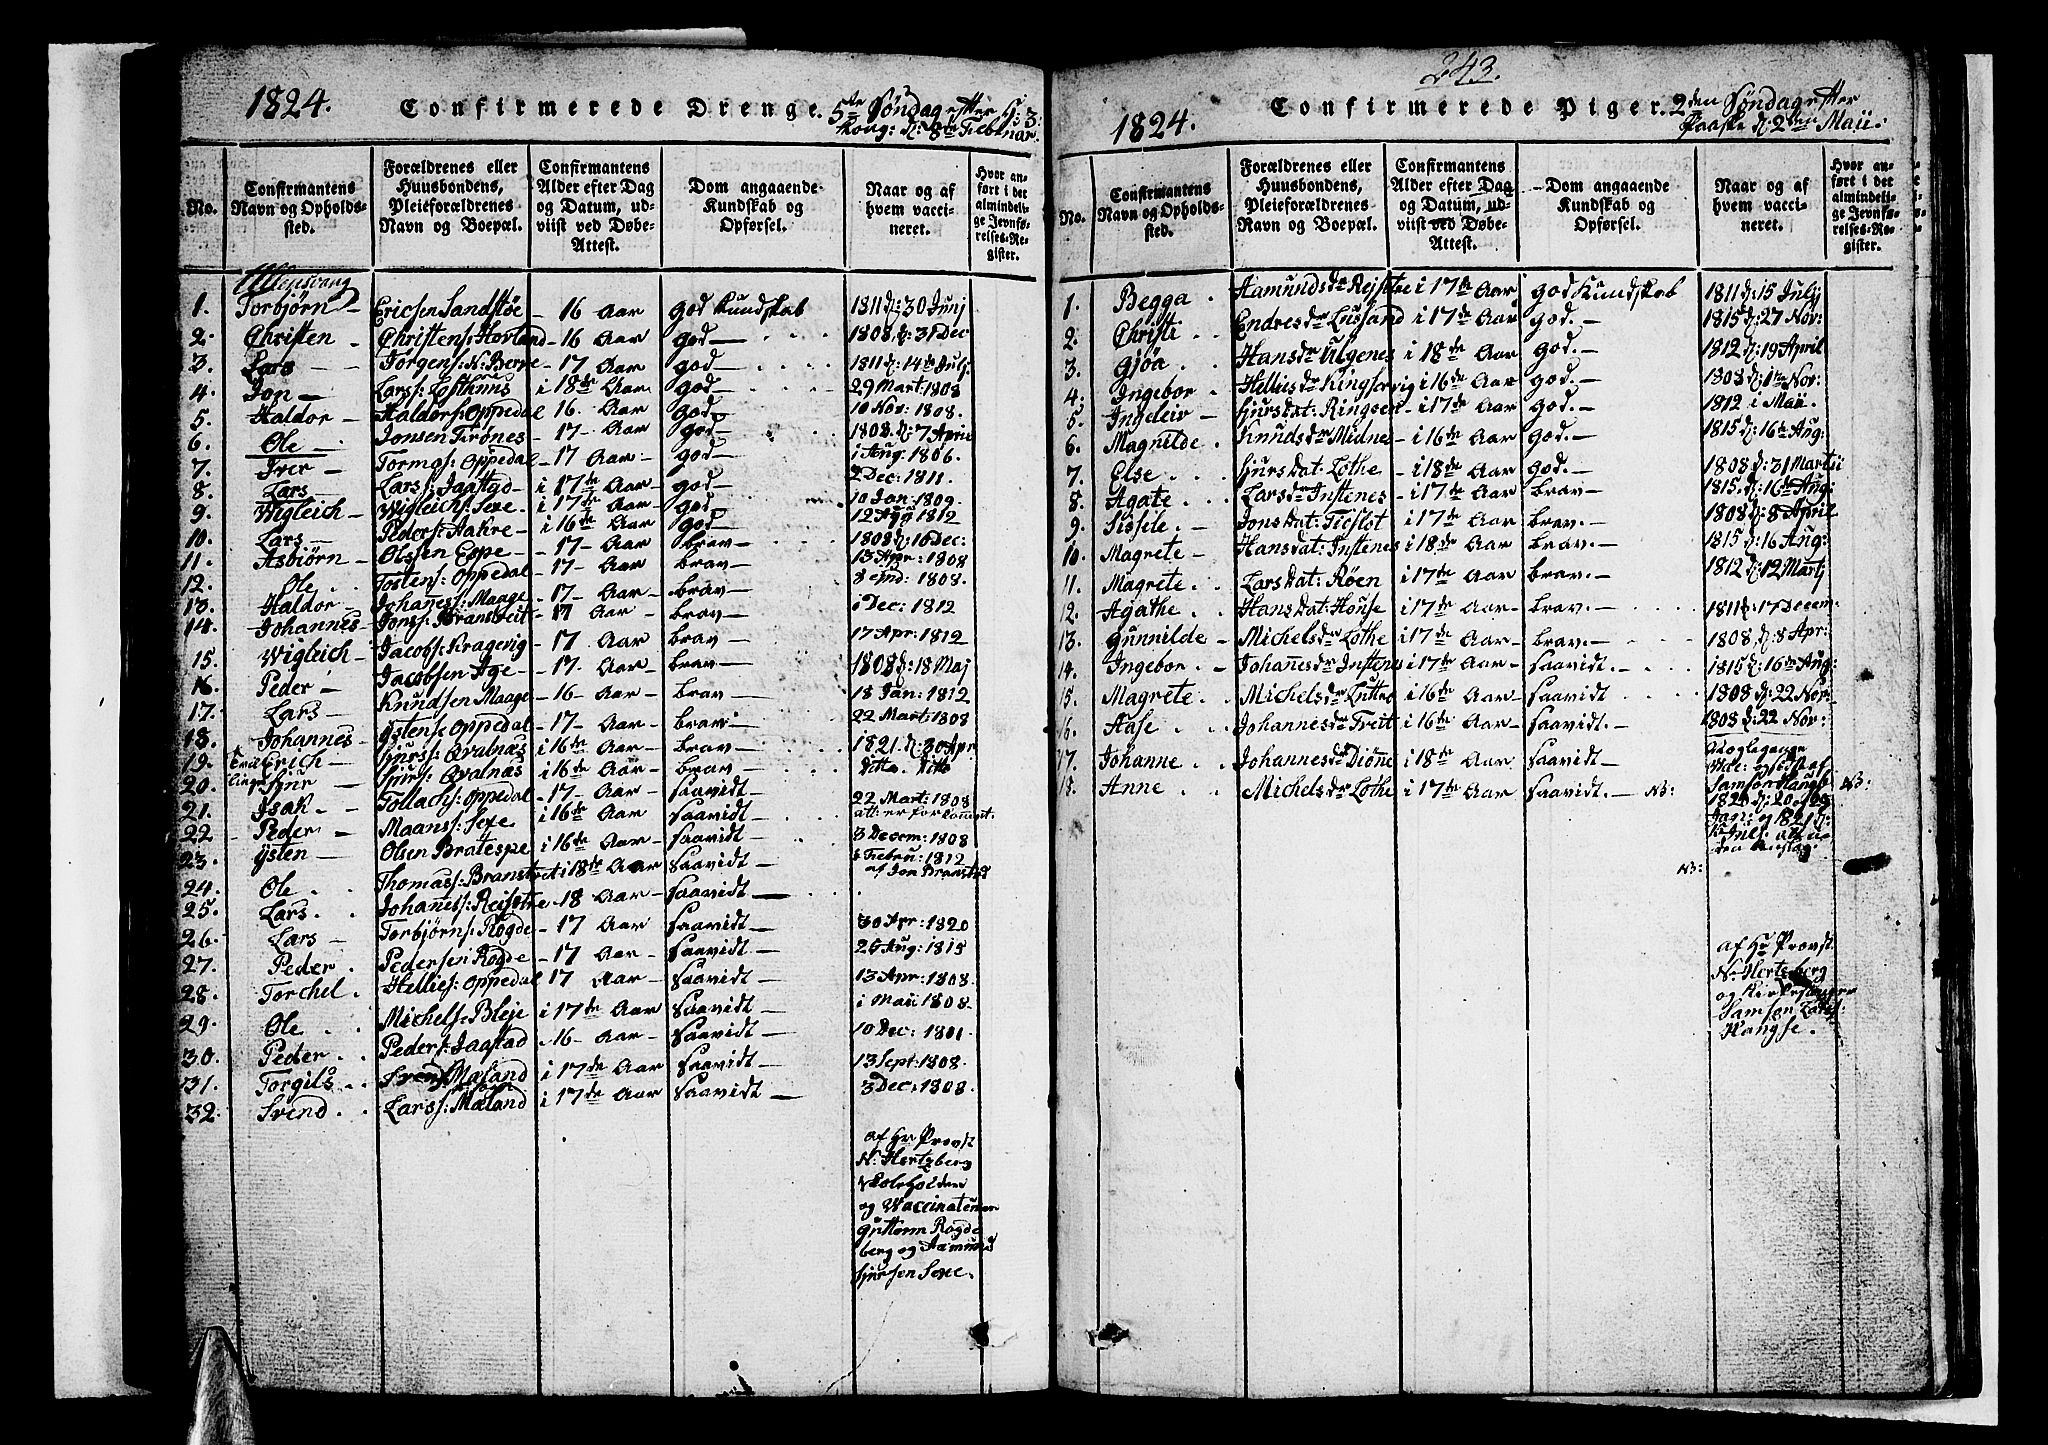 1824. Confirmerede Drenge. 5te Søndag efter H: 3:
Kong: d: 8de Februar.
No.
Confirmantens Navn og Opholds-sted.
Forældrenes eller Huusbondens, Pleieforældrenes Navn og Boepæl.
Confirmantens Alder efter Dag og Datum, udviist ved Døbe-Attest.
Dom angaaende Kundskab og Opførsel.
Naar og af hvem vaccineret.
Hvor anført i det almindelige Jevnførelses-Register.
Ullensvang
1. Torbjørn Ericsen Sandstøe 16 Aar god Kundskab 1811 d: 30 Junj
2. Christen Christens: Hovland 16 Aar god 1808, d: 31 Dec
3. Lars Jørgens: N: Berve 17 Aar god 1811 d: 14de Julj
4. Jon Lars: i 18de Aar god 29 Mart: 1808
5. Haldor Haldors: Oppedal 16 Aar god 10 Nov: 1808.
6. Ole Jonsen Trønes 17 Aar god 1808. d: 7 April
7. Iver Tormos: Oppedal 17 Aar god i Aug: 1806.
8. Lars Lars: i 17de Aar god 2 Dec: 1811.
9. Wigleich Wigleichs: Sexe i 17de Aar god 10 Jan: 1809.
10. Lars Peders: Aakre i 16de Aar god 12 1812
11. Asbiørn Olsen Espe 17 Aar brav 1808 d: 16 Dec:
12. Ole Tostens: Oppedal 17 Aar brav 13 Apr: 1808
13. Haldor Johanes: Maage 17 Aar brav 8 1808.
14. Johannes Jons: Bransveit 17 Aar brav i Dec: 1812
15. Wigleich Jacobs: Kragevig 17 Aar brav 17 Apr: 1812
16. Peder Jacobsen Age 17 Aar brav 1808 d: 18 Maj
17. Lars Knudsen Maage 16 Aar brav 18 Jan: 1812
18. Johannes Ystens: Oppedal 17 Aar brav 22 Mart: 1808
19. Erich Sjurs: Qvalnæs i 16de Aar brav 1821. d: 30 Apr
20. Sjur Sjurs: Qvalnæs i 16de Aar brav Ditto Ditto
21. Isak Tollachs: Oppedal 17 Aar saavidt 22 Mart: 1808
22. Peder Maans: Sexe i 16de Aar saavidt att: er forkommet.
23. Ysten Olsen Bratespe i 16de Aar saavidt 8 Decem: 1808
24. Ole Thomas: i 18de Aar saavidt i Febru: 1812
25. Lars Johanes: Reisetre 18 Aar saavidt
26. Lars Torbjørns: Rogde 17 Aar saavidt 30 Apr: 1820
27. Peder Pedersen Rogde 17 Aar saavidt 26 Aug: 1815
28. Torchel Hellies: Oppedal 17 Aar saavidt 13 Apr: 1808.
29. Ole Michels: Bleje i 17de Aar saavidt i Maii 1808.
30. Peder Peders: Jaastad 16 Aar saavidt 10 Dec: 1801.
31. Torgils Mæland i 17de Aar saavidt 13 Sept: 1808.
32. Svend Lars: Mæland i 17de Aar saavidt 3 Dec: 1808
af Hr Provst
N: Hertzberg
Skoleholder
og Vaccinateur
Guttorm Rogde
berg og Aamund
Sjursen Sexe.
243.
1824. Confirmerede Piger. 2den Søndag efter
Paaske d: 2den Maii.
No.
Confirmantens Navn og Opholds-sted.
Forældrenes eller Huusbondens, Pleieforældrenes Navn og Boepæl.
Confirmantens Alder efter Dag og Datum, udviist ved Døbe-Attest.
Dom angaaende Kundskab og Opførsel.
Naar og af hvem vaccineret.
Hvor anført i det almindelige Jevnførelses-Register.
1. Begga Aamundsdr Rejsetre i 17de Aar god Kundskab 1811 d: 15 Julj
2. Christi Endresdr Lusand i 17de Aar god. 1815 d: 27 Nov:
3. Gjøa Hansdr Ulgenes i 18de Aar god. 1812 d: 19 April
4. Ingebor Helliesdr Kingservig i 16de Aar god. 1808 d: 1te Nov:
5. Ingeleiv Sjursdat: Ringsen i 17de Aar god. 1812 i Maii
6. Magnilde Knudsdr Midnes i 16de Aar god. 1815 d: 16de Aug:
7. Else Sjursdat: Lothe i 18de Aar god. 1808 d: 31 Martii
8. Agate Larsdr Instenes i 17de Aar brav 1815. d: 16de Aug:
9. Sissile Jonsdat: i 17de Aar brav. 1808 d: 8 April
10. Magrete Hansdat: Instenes i 18de Aar brav. 1815 d: 16 Aug:
11. Magrete Larsdat: Røen i 17de Aar brav. 1812 d: 12 Martj
12. Agathe Hansdat: House i 17de Aar brav. 1811 d: 17 Decem
13. Gunnilde Michelsdr Lothe i 17de Aar brav. 1808 d: 8 Apr:
14. Ingebor Johanesdr Instenes i 17de Aar saavidt. 1815 d: 16de Aug:
15. Magrete Michelsdr Lutro i 16de Aar saavidt 1808 d: 22 Nov:
16. Aase Johannesdr Freit i 16de Aar saavidt 1808 d: 22 Nov:
17. Johanne Johannesdr i 18de Aar saavidt
18. Anne Michelsdr Lothe i 17de Aar saavidt. NB:
NB:
NB:
af Hr Provst
N: Hertzberg
og Kirkesanger
Samson Lars:
Haugse.